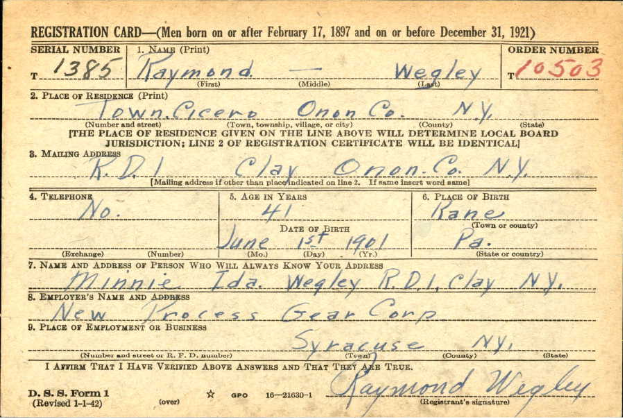 REGISTRATION CARD—(Men born on or after February 17, 1897 and on or before December 31, 1921)
SERIAL NUMBER 1. NAME (Print) ORDER NUMBER
T 1385 Raymond — Wegley T 10503
(First) (Middle) (Last)
2. PLACE OF RESIDENCE (Print)
Town. Cicero Onon Co. N.Y.
(Number and street) (Town, township, village, or city) (County) (State)
[THE PLACE OF RESIDENCE GIVEN ON THE LINE ABOVE WILL DETERMINE LOCAL BOARD
JURISDICTION; LINE 2 OF REGISTRATION CERTIFICATE WILL BE IDENTICAL]
3. MAILING ADDRESS
R.D.1 Clay Onon. Co. N.Y.
[Mailing address if other than place indicated on line 2. If same insert word same]
4. TELEPHONE 5. AGE IN YEARS 6. PLACE OF BIRTH
No. 41 Kane
DATE OF BIRTH (Town or county)
June 1st 1901 Pa.
(Exchange) (Number) (Mo.) (Day) (Yr.) (State or country)
7. NAME AND ADDRESS OF PERSON WHO WILL ALWAYS KNOW YOUR ADDRESS
Minnie Ida. Wegley R.D.1, Clay N.Y.
8. EMPLOYER'S NAME AND ADDRESS
New Process Gear Corp
9. PLACE OF EMPLOYMENT OR BUSINESS
Syracuse N.Y.
(Number and street or R. F. D. number) (Town) (County) (State)
I AFFIRM THAT I HAVE VERIFIED ABOVE ANSWERS AND THAT THEY ARE TRUE.
D. S. S. Form 1 Raymond Wegley
(Revised 1-1-42) (over) ☆ GPO 16—21630-1 (Registrant's signature)